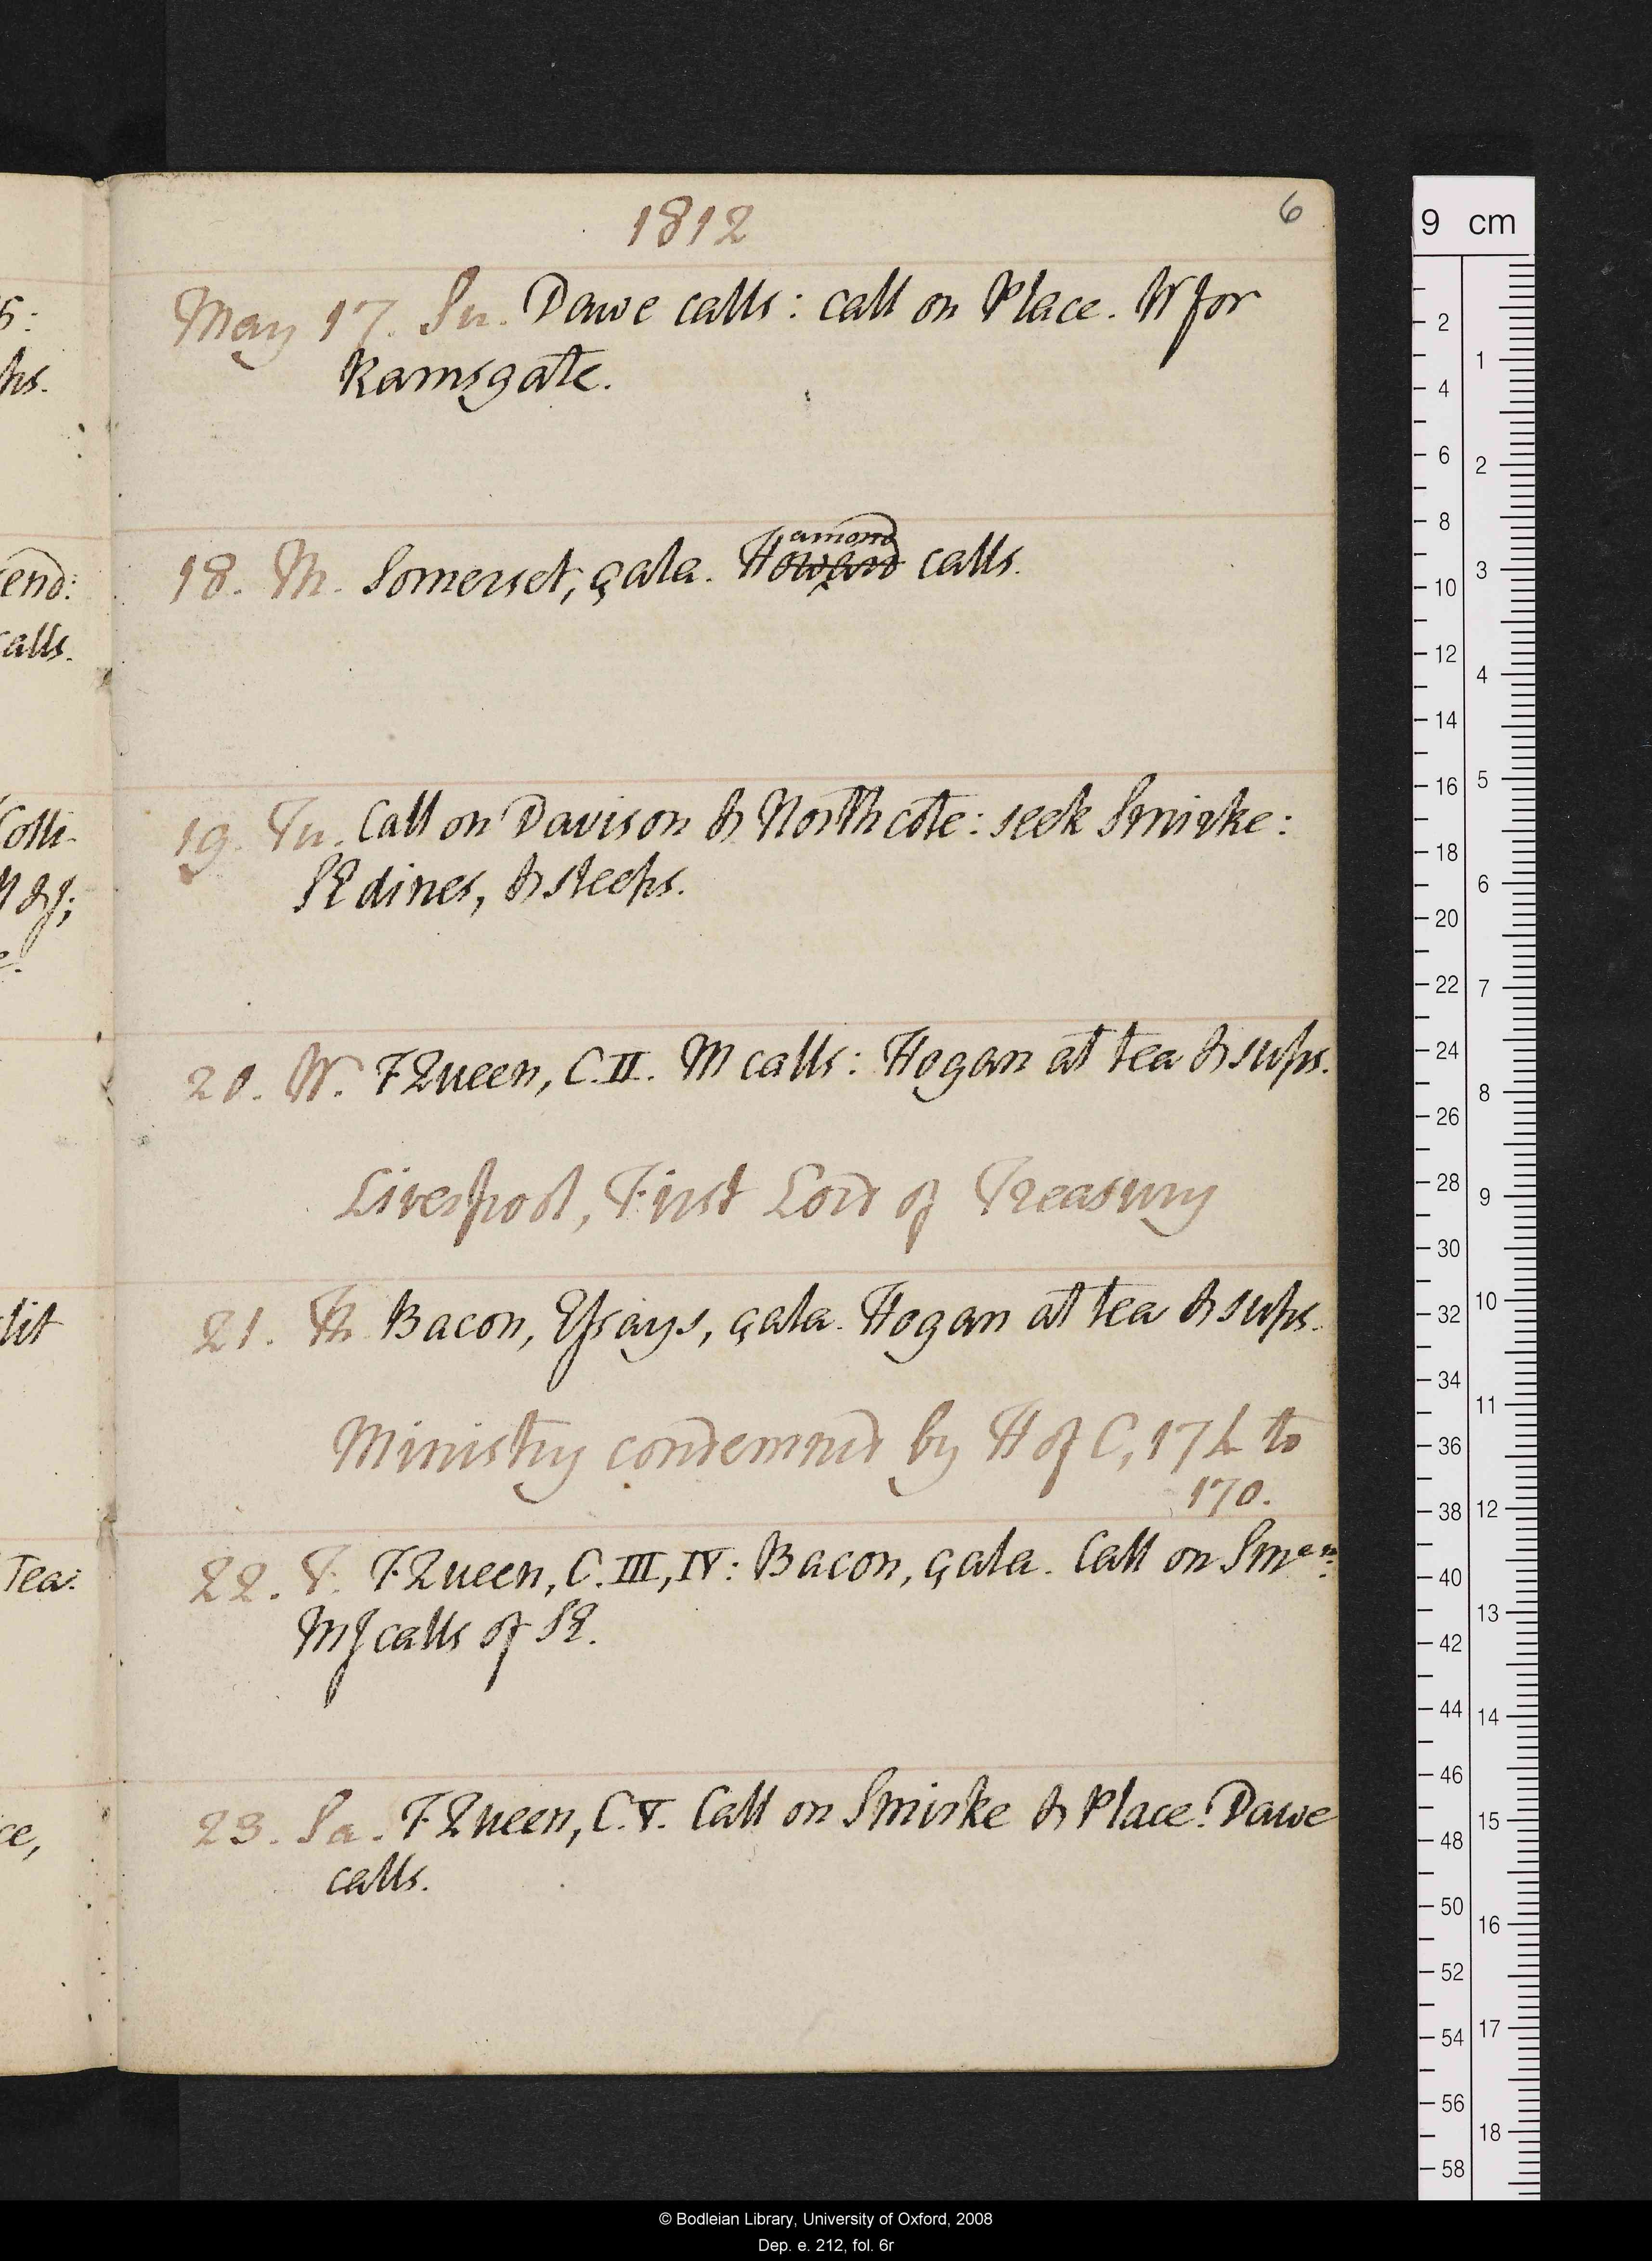 1812
6
May 17. Su. Dawe calls: call on Place. W for
Ramsgate.
amond
18. M. Somerset, çala. Howard calls.
19. Tu. Call on Davison & Northcote: seek Smirke:
SE dines, & sleeps.
20. W. F Queen, C. II. M calls: Hogan at tea & sups.
Liverpool, First Lord of Treasury
21. Th. Bacon, Essays, çala. Hogan at tea & sups.
Ministry condemned by H of C, 174 to
170.
22. F. F Queen, C. III, IV: Bacon, çala. Call on Smen:
MJ calls of SE.
23. Sa. F Queen, C. V. Call on Smirke & Place. Dawe
calls.
s:
ps.
end:
calls.
Colli-
&J;
e.
Tea:
ce,
9 cm
2
4
6
8
10
12
14
16
18
20
22
24
26
28
30
32
34
36
38
40
42
44
46
48
50
52
54
56
58
1
2
3
4
5
6
7
8
9
10
11
12
13
14
15
16
17
18
© Bodleian Library, University of Oxford, 2008
Dep. e. 212, fol. 6r